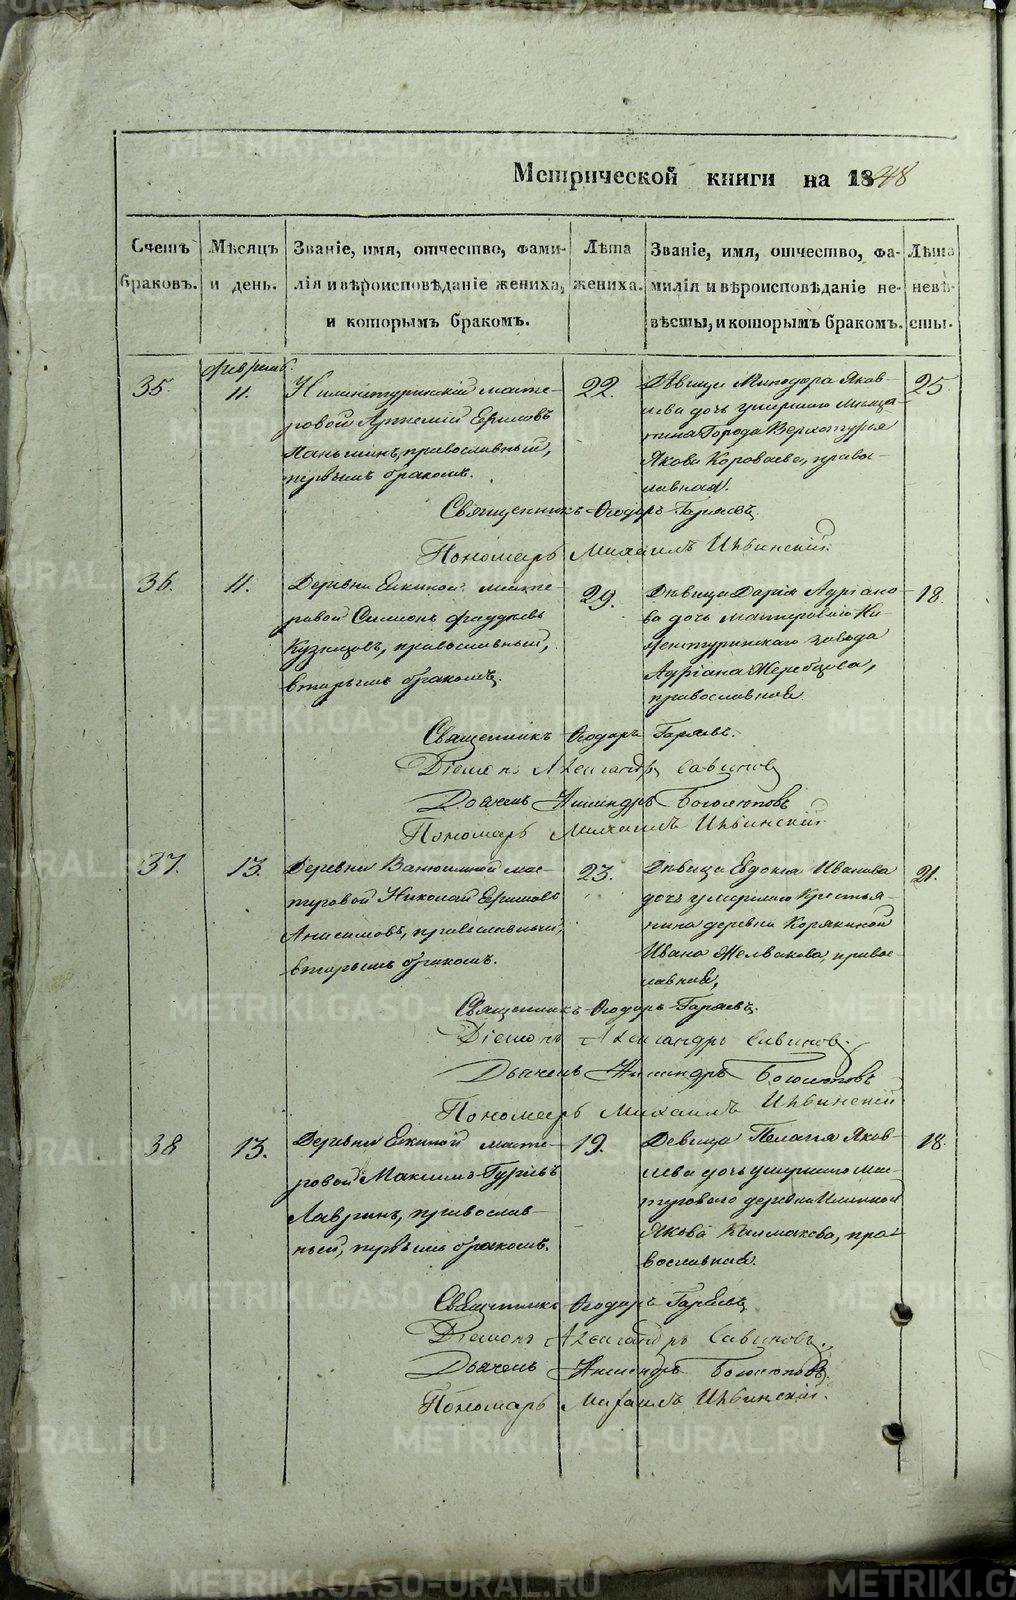 METRIKI.GASO-URAL.RU
Метрической книги на 1848
Счетъ браковъ.
Мѣсяцъ и день.
Званіе, имя, отчество, фами-
лія и вѣроисповѣданіе жениха,
и которымъ бракомъ.
Лѣта жениха.
Званіе, имя, отчество, фа-
милія и вѣроисповѣданіе не-
вѣсты, и которымъ бракомъ.
Лѣта невѣ-
сты.
35
11.
масте-
ровой Артемій
Паньшинъ, православный,
первымъ бракомъ.
22.
Дѣвица Минодора Яков-
лева дочь умершаго Мѣща-
нина Города Верхотурья
Якова Короваева, право-
славная.
25
Священникъ Ѳеодоръ Гаряевъ.
Пономарь Михаилъ Ильинскій.
36.
11.
Деревни Елкиной масте-
ровой Симеонъ
Кузнецовъ, православный,
вторымъ бракомъ.
29.
Дѣвица Дарія Адріано-
ва дочь мастероваго Ни-
жнетуринскаго завода
Адріана Жеребцова,
православная.
18.
Священникъ Ѳеодоръ Гаряевъ.
Діаконъ Александръ Савиновъ
Дьячекъ Боголюбовъ
Пономарь Михаилъ Ильинскій
37.
13.
Деревни мас-
теровой Николай
Анисимовъ, православный,
вторымъ бракомъ.
23.
Дѣвица Евдокія Иванова
дочь умершаго Крестья-
нина деревни Корякиной
Ивана Желвакова, право-
славная,
21.
Священникъ Ѳеодоръ Гаряевъ.
Діаконъ Александръ Савиновъ.
Дьячекъ Боголюбовъ
Пономарь Михаилъ Ильинскій
38
13.
Деревни Елкиной масте-
ровой Максимъ Гурьевъ
Лавринъ, православ-
ный, первымъ бракомъ.
19.
Девица Пелагія Яков-
лева дочь умершаго мас-
тероваго деревни
Якова Калмакова, пра-
вославная.
18.
Священникъ Ѳеодоръ Гаряевъ
Діаконъ Александръ Савиновъ.
Дьячекъ Боголюбовъ.
Пономарь Михаилъ Ильинскій.